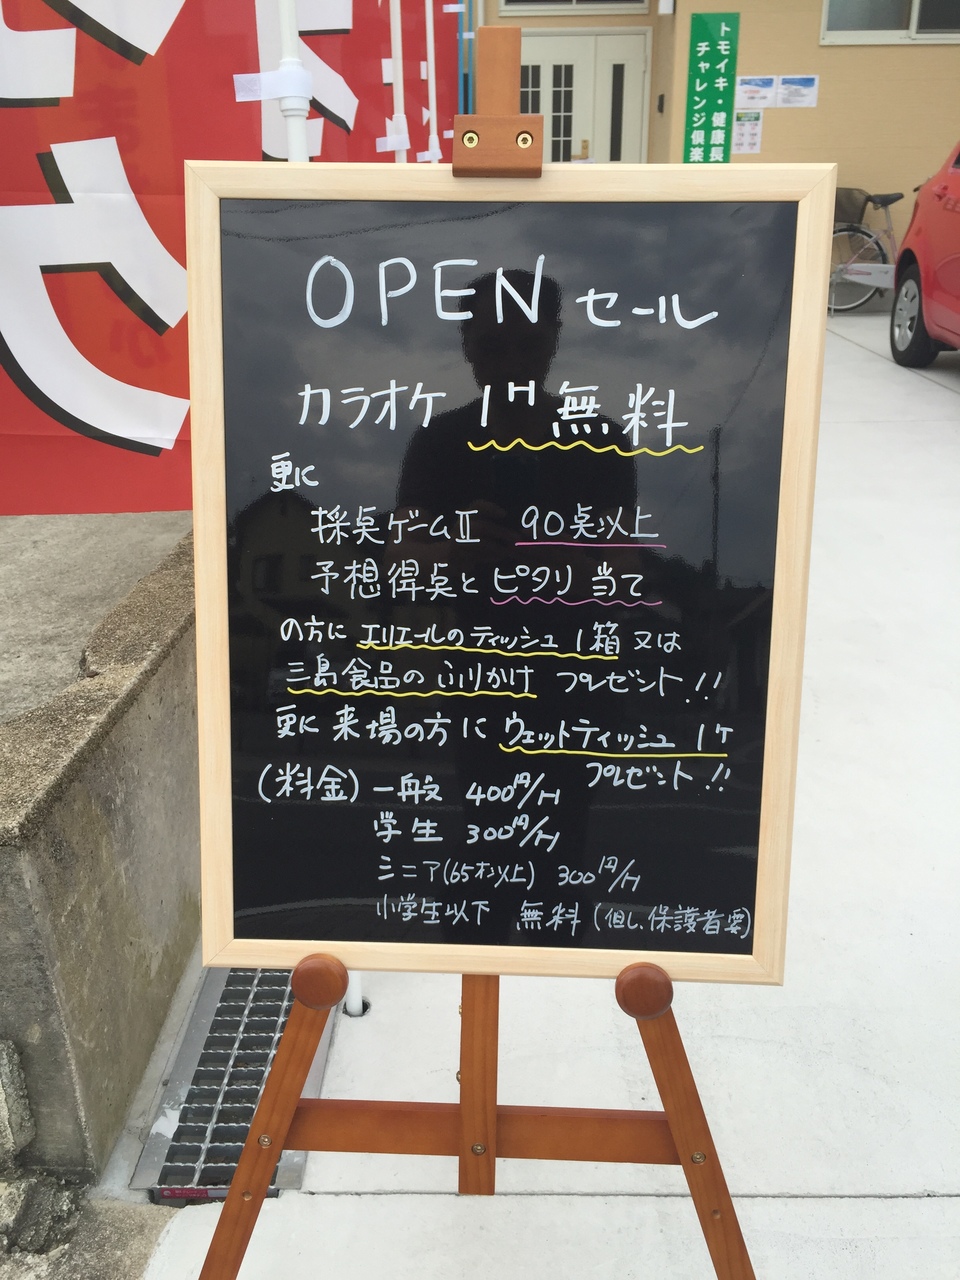 トモイキ・健康長
チャレンジ倶楽
OPEN セール
カラオケ 1H無料
更に
採点ゲームⅡ 90点以上
予想得点とピタリ当て
の方に エリエールのティッシュ1箱 又は
三島食品のふりかけ プレゼント!!
更に来場の方に ウェットティッシュ 1ケ
プレゼント!!
(料金) 一般 400円/H
学生 300円/H
シニア(65才以上) 300円/H
小学生以下 無料 (但し、保護者要)